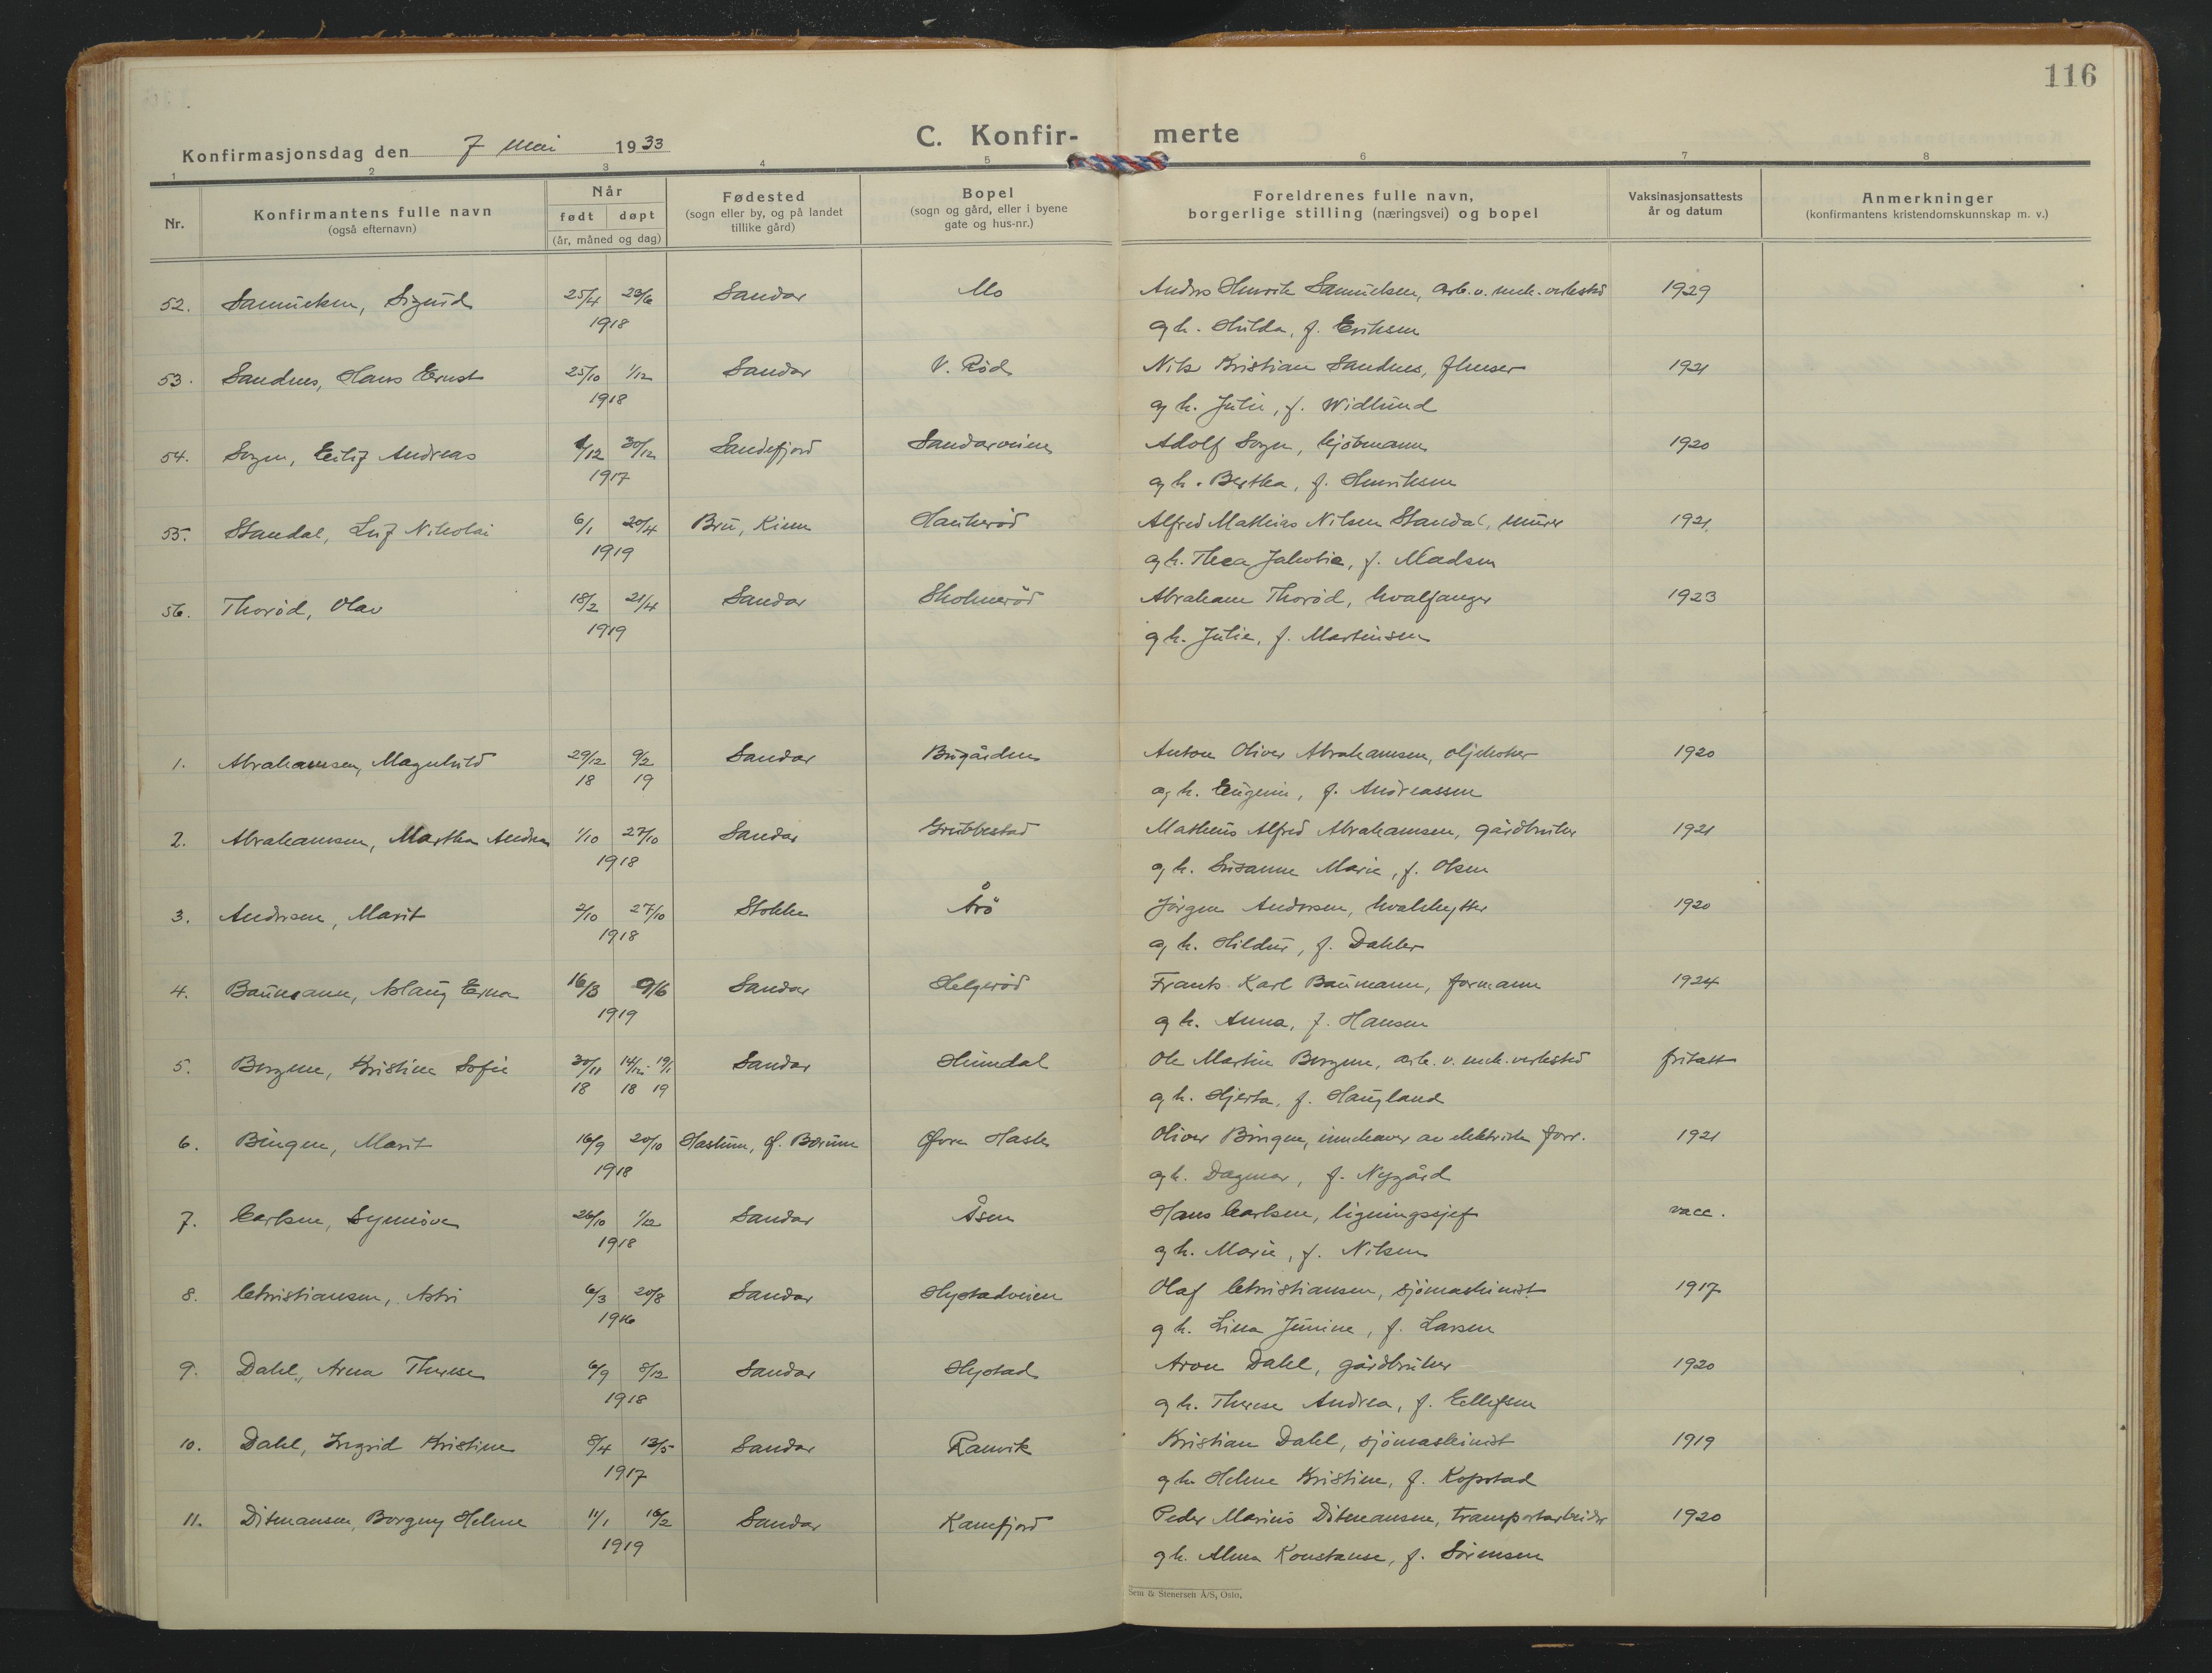 116
C. Konfirmerte
Konfirmasjonsdag den 7 mai 1933
1 2 3 4 5 6 7 8
Nr.
Konfirmantens fulle navn
(også efternavn)
Når
født døpt
(år, måned og dag)
Fødested
(sogn eller by, og på landet
tillike gård)
Bopel
(sogn og gård, eller i byene
gate og hus-nr.)
Foreldrenes fulle navn,
borgerlige stilling (næringsvei) og bopel
Vaksinasjonsattests
år og datum
Anmerkninger
(konfirmantens kristendomskunnskap m. v.)
52. Samuelsen, Sigurd 25/4 23/6 Sandar Mo Anders Henrik Samuelsen, arb. v. mek. verksted 1929
1918 og h. Hilda, f. Eriksen
53. Sandnes, Hans Ernst 25/10 1/12 Sandar V. Rød Nils Kristian Sandnes, flenser 1921
1918 og h. Julie, f. Widlund
54. Sogn, Eilif Andreas /12 30/12 Sandefjord Sandarveien Adolf Sogn, kjøbmann 1920
1917 og h. Bertha, f. Henriksen
55. Standal, Leif Nikolai 6/1 20/4 Bru, Kinn Haukerød Alfred Mathias Nilsen Standal, murer 1921.
1919 og h. Thea Jakobie, f. Madsen
56. Thorød, Olav 18/2 21/4 Sandar Skolmerød Abraham Thorød, hvalfanger 1923
1919 og h. Julie, f. Martinsen
1. Abrahamsen, Magnhild 29/12 9/2 Sandar Bugården Anton Oliver Abrahamsen, oljekoker 1920
18 19 og h. Eugenie, f. Andreassen
2. Abrahamsen, Martha Andrea 1/10 27/10 Sandar Grubbestad Matheus Alfred Abrahamsen, gårdbruker 1921
1918 og h. Susanne Marie, f. Olsen
3. Andersen, Marit 2/10 27/10 Stokke Årø Jørgen Andersen, hvalskytter 1920
1918 og h. Hildur, f. Dahler
4. Baumann, Aslaug Erna 16/3 9/6 Sandar Helgerød Frants Karl Baumann, formann 1924
1919 og h. Anna, f. Hansen
5. Bergene, Kristine Sofie 30/11 14/12 - 19/1 Sandar Heimdal Ole Martin Bergene, arb. v. mek. verksted fritatt
18 18 19 og h. Hjerta, f. Haugland
6. Bingen, Marit 16/9 20/10 Haslum, Ø. Bærum Øvre Hasle Oliver Bingen, innehaver av elektrisk forr. 1921
1918 og h. Dagmar, f. Nygård
7. Carlsen, Synnøve 26/10 1/12 Sandar Åsen Hans Carlsen, ligningssjef vacc.
1918 og h. Marie, f. Nilsen
8. Christiansen, Astri 6/3 20/8 Sandar Hystadveien Olaf Christiansen, sjømaskinist 1917
1916 og h. Lina Junine, f. Larsen
9. Dahl, Arna Therese 6/9 8/12 Sandar Hystad Aron Dahl, gårdbruker 1920
1918 og h. Therese Andrea, f. Ellefsen
10. Dahl, Ingrid Kristine 8/4 13/5 Sandar Ranvik Kristian Dahl, sjømaskinist 1919
1917 og h. Helene Kristine, f. Kopstad
11. Ditmansen, Borgny Helene 11/1 16/2 Sandar Kamfjord Peder Marius Ditmansen, transportarbeider 1920
1919 og h. Alma Konstanse, f. Sørensen
Sem & Stenersen A/S, Oslo.